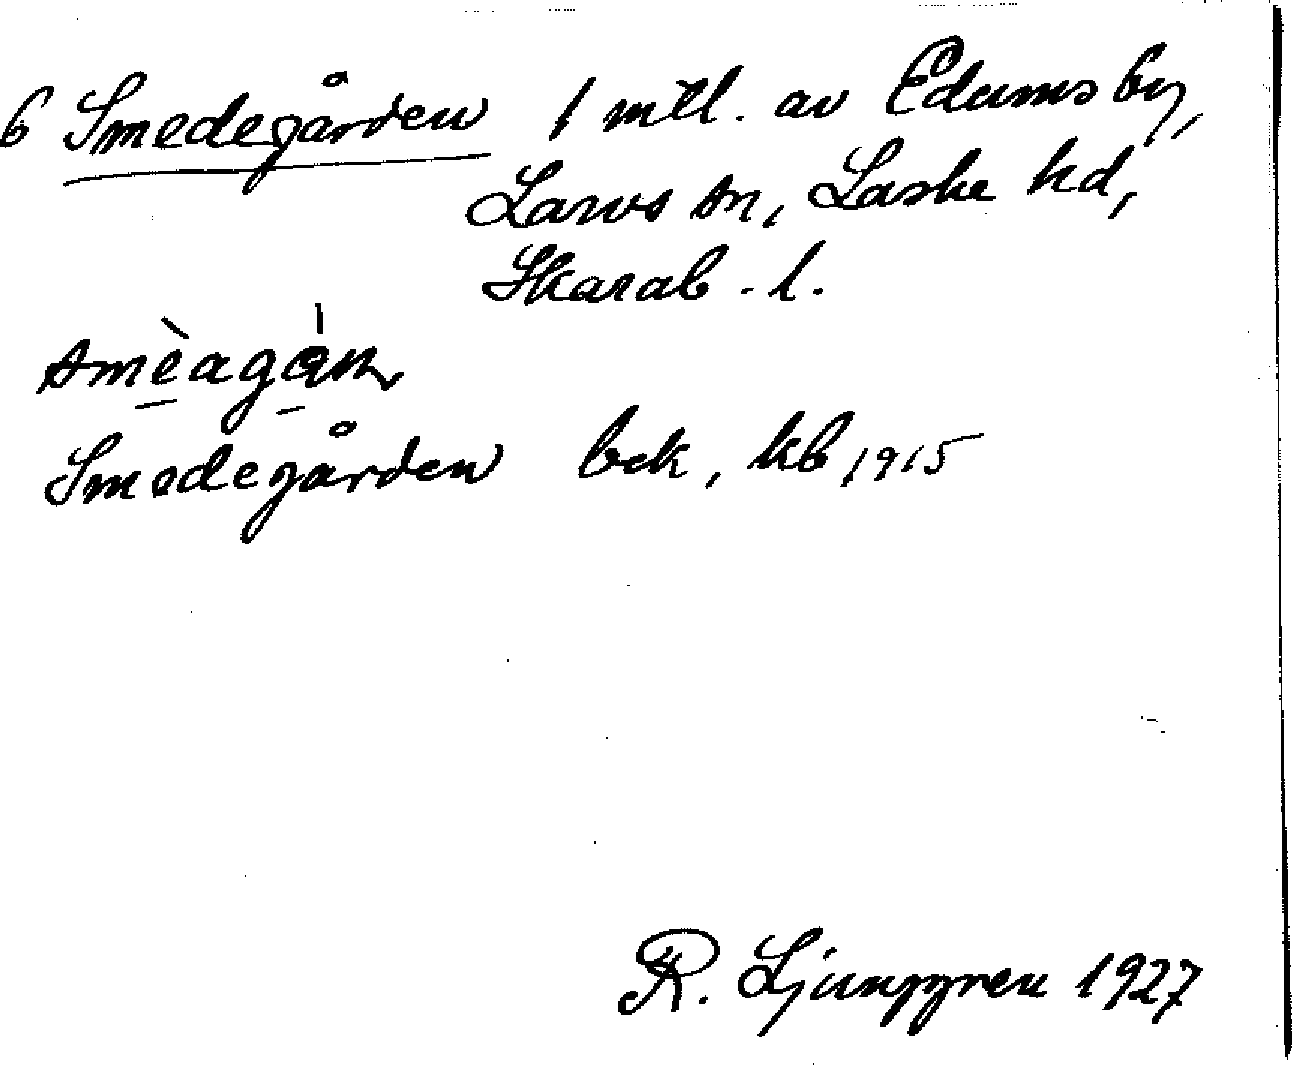 6 Smedegården 1 mtl. av Edums by,
Larvs sn, Laske hd,
Skarab. l.
smèagán
Smedegården bek, kb 1915
R. Ljunggren 1927